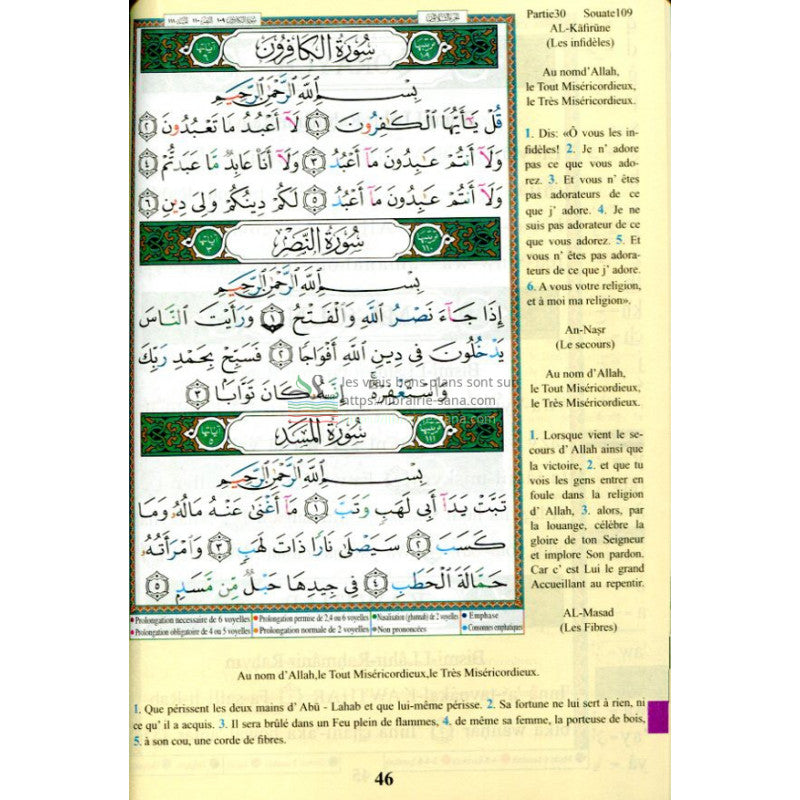 سُورَةُ الكَافِرُونَ
بِسْمِ اللَّهِ الرَّحْمَٰنِ الرَّحِيمِ
قُلْ يَٰٓأَيُّهَا ٱلْكَٰفِرُونَ ١ لَآ أَعْبُدُ مَا تَعْبُدُونَ ٢
وَلَآ أَنتُمْ عَٰبِدُونَ مَآ أَعْبُدُ ٣ وَلَآ أَنَا۠ عَابِدٌ مَّا عَبَدتُّمْ ٤
وَلَآ أَنتُمْ عَٰبِدُونَ مَآ أَعْبُدُ ٥ لَكُمْ دِينُكُمْ وَلِىَ دِينِ ٦
سُورَةُ النَّصْرِ
بِسْمِ اللَّهِ الرَّحْمَٰنِ الرَّحِيمِ
إِذَا جَآءَ نَصْرُ ٱللَّهِ وَٱلْفَتْحُ ١ وَرَأَيْتَ ٱلنَّاسَ
يَدْخُلُونَ فِى دِينِ ٱللَّهِ أَفْوَاجًا ٢ فَسَبِّحْ بِحَمْدِ رَبِّكَ
وَٱسْتَغْفِرْهُ إِنَّهُۥ كَانَ تَوَّابًۢا ٣
les vrais bons plans sont sur
https://librairie-sana.com
سُورَةُ المَسَدِ
بِسْمِ اللَّهِ الرَّحْمَٰنِ الرَّحِيمِ
تَبَّتْ يَدَآ أَبِى لَهَبٍ وَتَبَّ ١ مَآ أَغْنَىٰ عَنْهُ مَالُهُۥ وَمَا
كَسَبَ ٢ سَيَصْلَىٰ نَارًا ذَاتَ لَهَبٍ ٣ وَٱمْرَأَتُهُۥ
حَمَّالَةَ ٱلْحَطَبِ ٤ فِى جِيدِهَا حَبْلٌ مِّن مَّسَدٍۭ ٥
Prolongation necessaire de 6 voyelles Prolongation permise de 2,4 ou 6 voyelles Nasalisation (ghunnah) de 2 voyelles Emphase
Prolongation obligatoire de 4 ou 5 voyelles Prolongation normale de 2 voyelles Non prononcées Consonnes emphatiques
Partie30 Souate109
AL-Kâfirûne
(Les infidèles)
Au nomd'Allah,
le Tout Miséricordieux,
le Très Miséricordieux.
1. Dis: «Ô vous les in-
fidèles! 2. Je n' adore
pas ce que vous ado-
rez. 3. Et vous n' êtes
pas adorateurs de ce
que j' adore. 4. Je ne
suis pas adorateur de ce
que vous adorez. 5. Et
vous n' êtes pas adora-
teurs de ce que j' adore.
6. A vous votre religion,
et à moi ma religion».
An-Naṣr
(Le secours)
Au nom d'Allah,
le Tout Miséricordieux,
le Très Miséricordieux.
1. Lorsque vient le se-
cours d' Allah ainsi que
la victoire, 2. et que tu
vois les gens entrer en
foule dans la religion
d' Allah, 3. alors, par
la louange, célèbre la
gloire de ton Seigneur
et implore Son pardon.
Car c' est Lui le grand
Accueillant au repentir.
AL-Masad
(Les Fibres)
Au nom d'Allah,le Tout Miséricordieux,le Très Miséricordieux.
1. Que périssent les deux mains d' Abû - Lahab et que lui-même périsse. 2. Sa fortune ne lui sert à rien, ni
ce qu' il a acquis. 3. Il sera brûlé dans un Feu plein de flammes, 4. de même sa femme, la porteuse de bois,
5. à son cou, une corde de fibres.
46